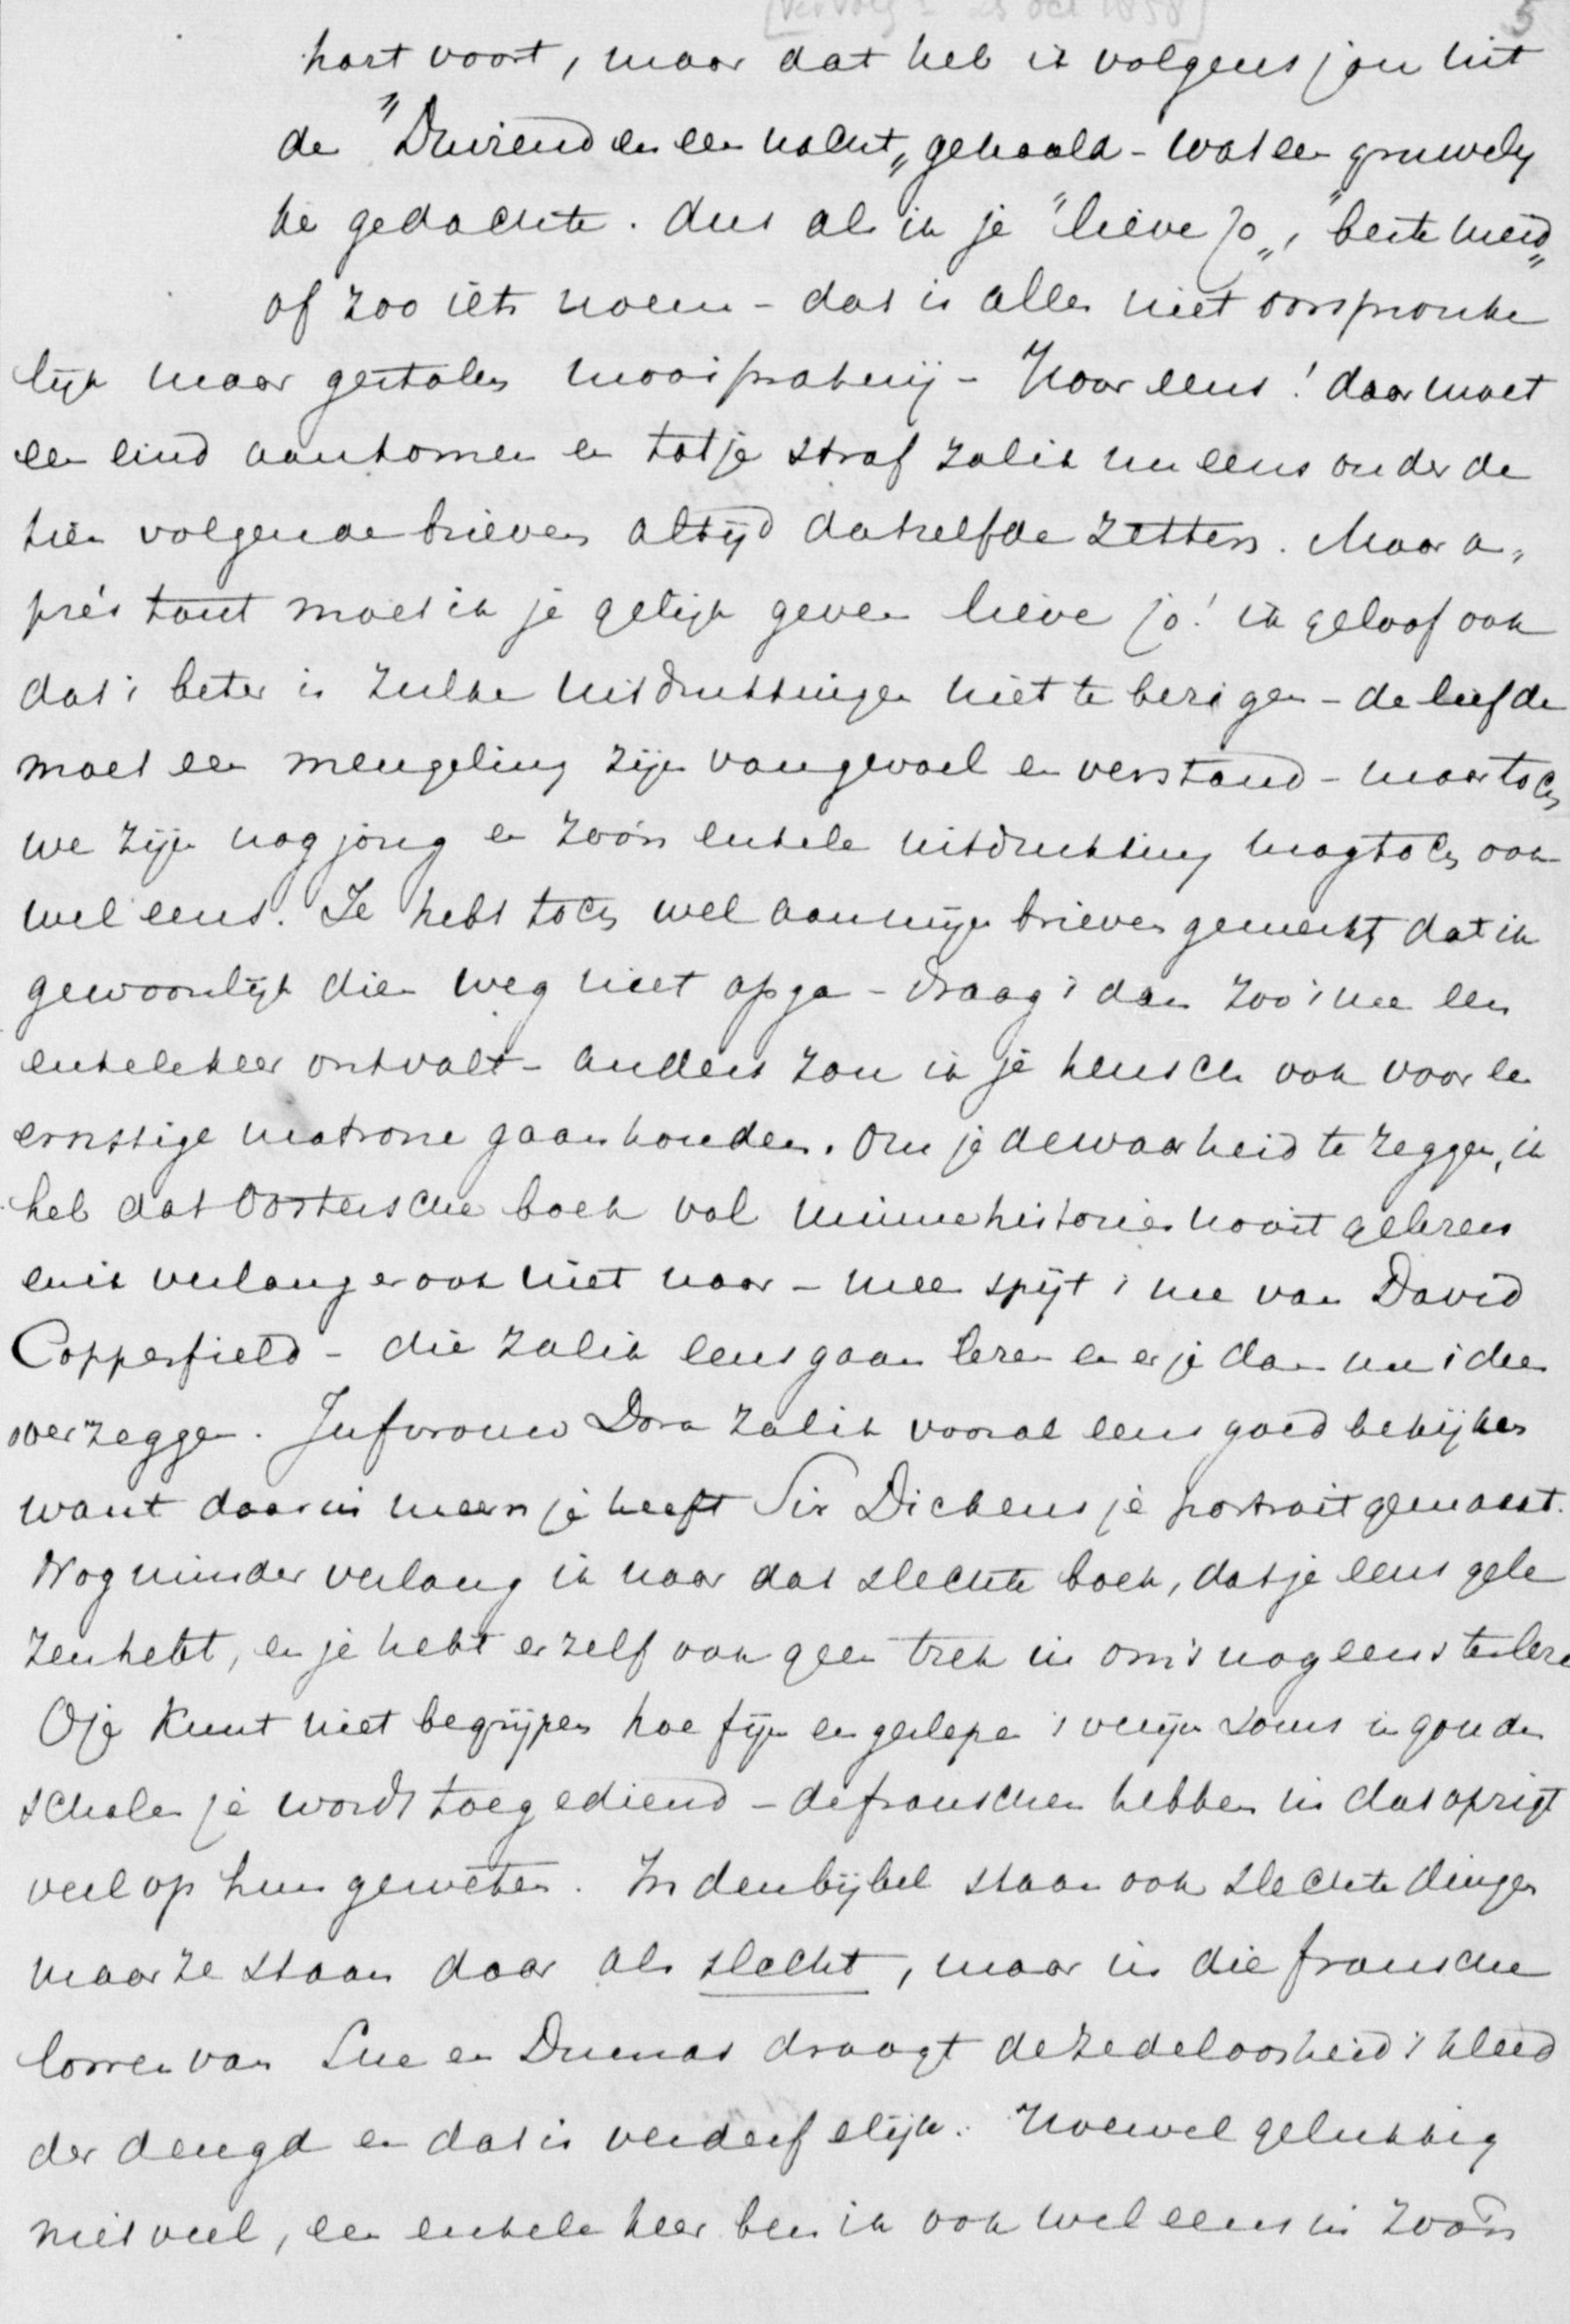 [vervolg - 25 Oct 1858] 5
hart voort, maar dat heb ik volgens jou uit
de "Duizend en een nacht" gehaald - wat een gruwely
ke gedachte. dus als ik je "lieve Jo", "beste meid"
of zoo iets noem - dat is alles niet oorspronke
lijk maar gestolen mooipraterij - Hoor eens! daar moet
een eind aankomen en tot je straf zal ik nu eens onder de
hier volgende brieven altijd datzelfde zetten. Maar a„
près tout moet ik je gelijk geven lieve Jo! ik geloof ook
dat 't beter is zulke uitdrukkingen niet te bezigen - de liefde
moet een mengeling zijn van gevoel en verstand - maar toch
we zijn nog jong en zoo'n enkele uitdrukking mag toch ook
wel eens. Je hebt toch wel aan mijn brieven gemerkt dat ik
gewoonlijk dien weg niet opga - draag 't dan zoo 't me een
enkele keer ontvalt - anders zou ik je heusch ook voor een
ernstige matrone gaan houden. Om je de waarheid te zeggen, ik
heb dat Oostersche boek vol minnehistories nooit gelezen
en ik verlang er ook niet naar - meer spijt 't me van David
Copperfield - die zal ik eens gaan lezen en er je dan mn idee
over zeggen. Jufvrouw Dora zal ik vooral eens goed bekijken
want daarin meen je heeft Sir Dickens je portrait gemaakt.
Nog minder verlang ik naar dat slechte boek, dat je eens gele
zen hebt, en je hebt er zelf ook geen trek in om 't nog eens te leze
O je kunt niet begrijpen hoe fijn en geslepen 't venijn soms in gouden
schalen je wordt toegediend - de franschen hebben in dat opzigt
veel op hun geweten. In den bijbel staan ook slechte dingen
maar ze staan daar als slecht, maar in die fransche
lorren van Sue en Dumas draagt de zedeloosheid 't kleed
der deugd en dat is verderfelijk. Hoewel gelukkig
niet veel, een enkele keer ben ik ook wel eens in zoo'n